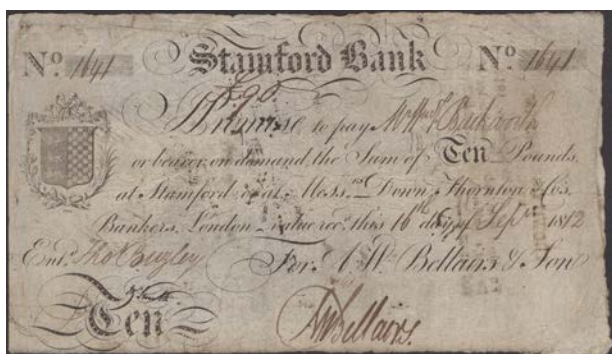 No 1641 Stamford Bank No 1641
I Promise to pay Mr Wm
or bearer on demand the Sum of Ten Pounds
at Stamford or at Messrs Down, Thornton & Co's
Bankers, London value recd this 16th day of Sepr 1812
Entd Thos For A. Wm Bellairs & Son
Ten
Bellairs.